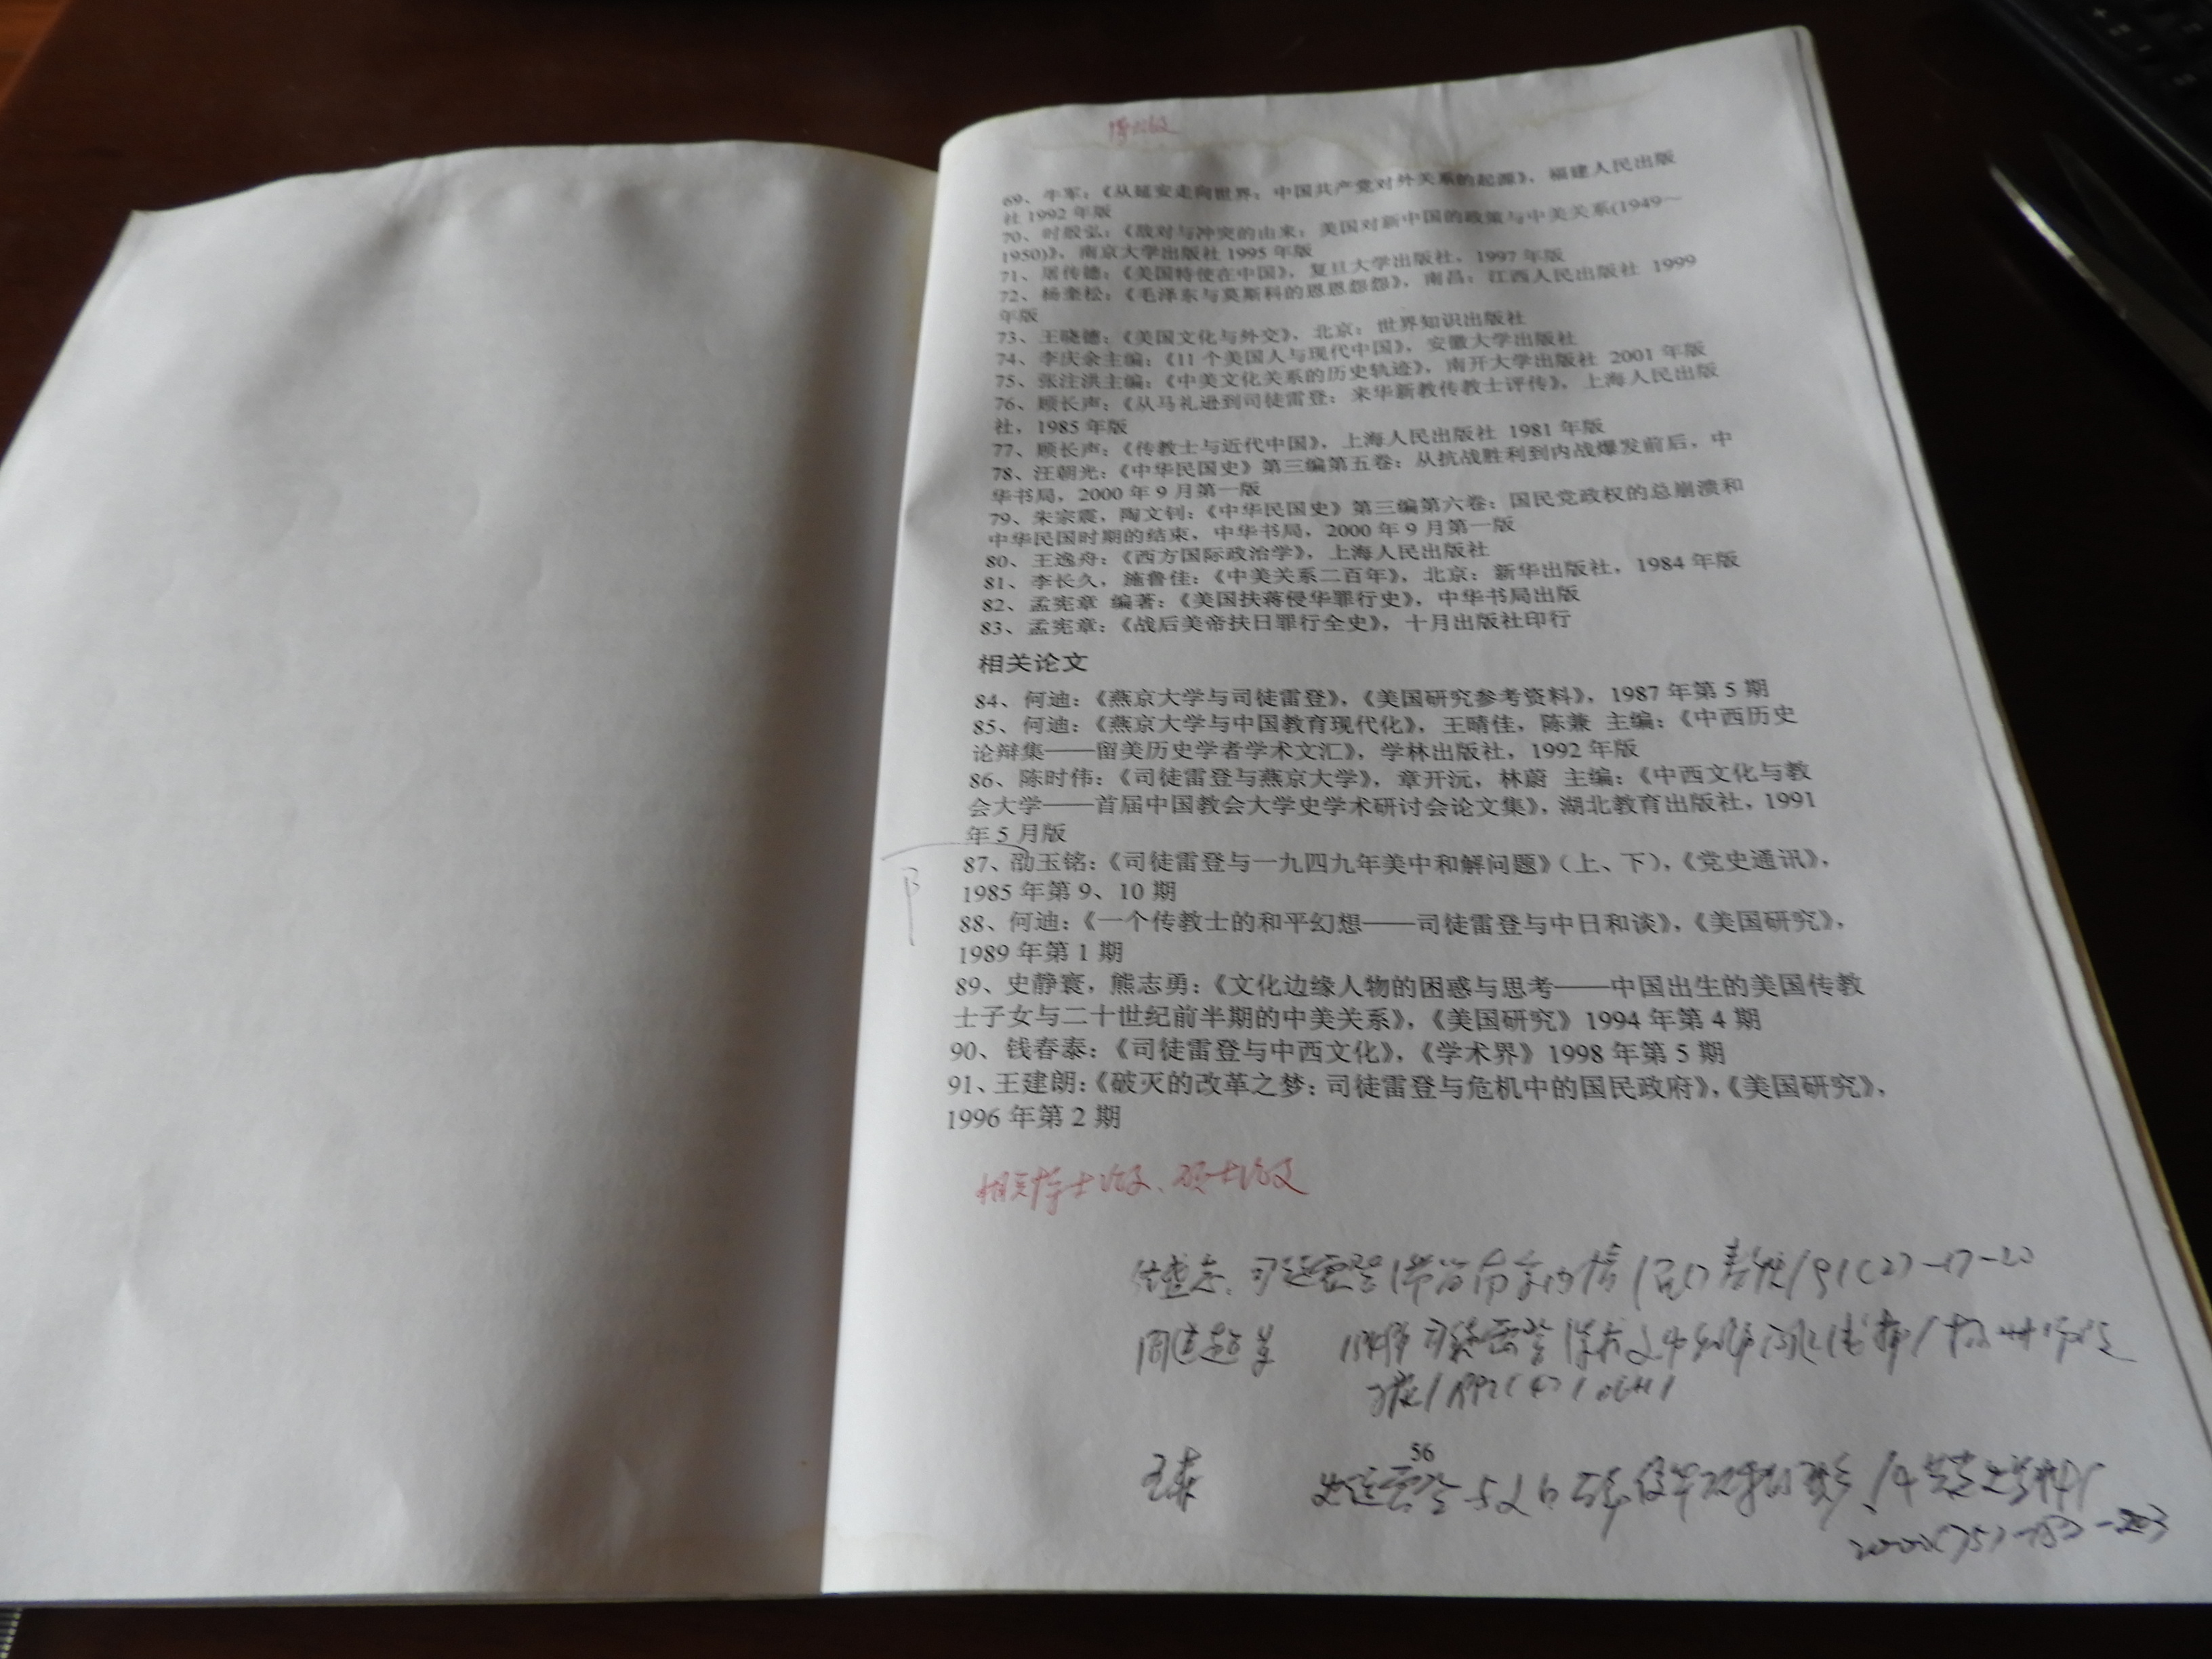 69、牛军：《从延安走向世界：中国共产党对外关系的起源》，福建人民出版
社 1992 年版
70、时殷弘：《敌对与冲突的由来：美国对新中国的政策与中美关系(1949～
1950)》，南京大学出版社 1995 年版
71、屠传德：《美国特使在中国》，复旦大学出版社，1997 年版
72、杨奎松：《毛泽东与莫斯科的恩恩怨怨》，南昌：江西人民出版社 1999
年版
73、王晓德：《美国文化与外交》，北京：世界知识出版社
74、李庆余主编：《11 个美国人与现代中国》，安徽大学出版社
75、张注洪主编：《中美文化关系的历史轨迹》，南开大学出版社 2001 年版
76、顾长声：《从马礼逊到司徒雷登：来华新教传教士评传》，上海人民出版
社，1985 年版
77、顾长声：《传教士与近代中国》，上海人民出版社 1981 年版
78、汪朝光：《中华民国史》第三编第五卷：从抗战胜利到内战爆发前后，中
华书局，2000 年 9 月第一版
79、朱宗震，陶文钊：《中华民国史》第三编第六卷：国民党政权的总崩溃和
中华民国时期的结束，中华书局，2000 年 9 月第一版
80、王逸舟：《西方国际政治学》，上海人民出版社
81、李长久，施鲁佳：《中美关系二百年》，北京：新华出版社，1984 年版
82、孟宪章 编著：《美国扶蒋侵华罪行史》，中华书局出版
83、孟宪章：《战后美帝扶日罪行全史》，十月出版社印行
相关论文
84、何迪：《燕京大学与司徒雷登》，《美国研究参考资料》，1987 年第 5 期
85、何迪：《燕京大学与中国教育现代化》，王晴佳，陈兼 主编：《中西历史
论辩集——留美历史学者学术文汇》，学林出版社，1992 年版
86、陈时伟：《司徒雷登与燕京大学》，章开沅，林蔚 主编：《中西文化与教
会大学——首届中国教会大学史学术研讨会论文集》，湖北教育出版社，1991
年 5 月版
87、邵玉铭：《司徒雷登与一九四九年美中和解问题》（上、下），《党史通讯》，
1985 年第 9、10 期
88、何迪：《一个传教士的和平幻想——司徒雷登与中日和谈》，《美国研究》，
1989 年第 1 期
89、史静寰，熊志勇：《文化边缘人物的困惑与思考——中国出生的美国传教
士子女与二十世纪前半期的中美关系》，《美国研究》1994 年第 4 期
90、钱春泰：《司徒雷登与中西文化》，《学术界》1998 年第 5 期
91、王建朗：《破灭的改革之梦：司徒雷登与危机中的国民政府》，《美国研究》，
1996 年第 2 期
相关博士论文、硕士论文
司徒雷登
司徒雷登
56